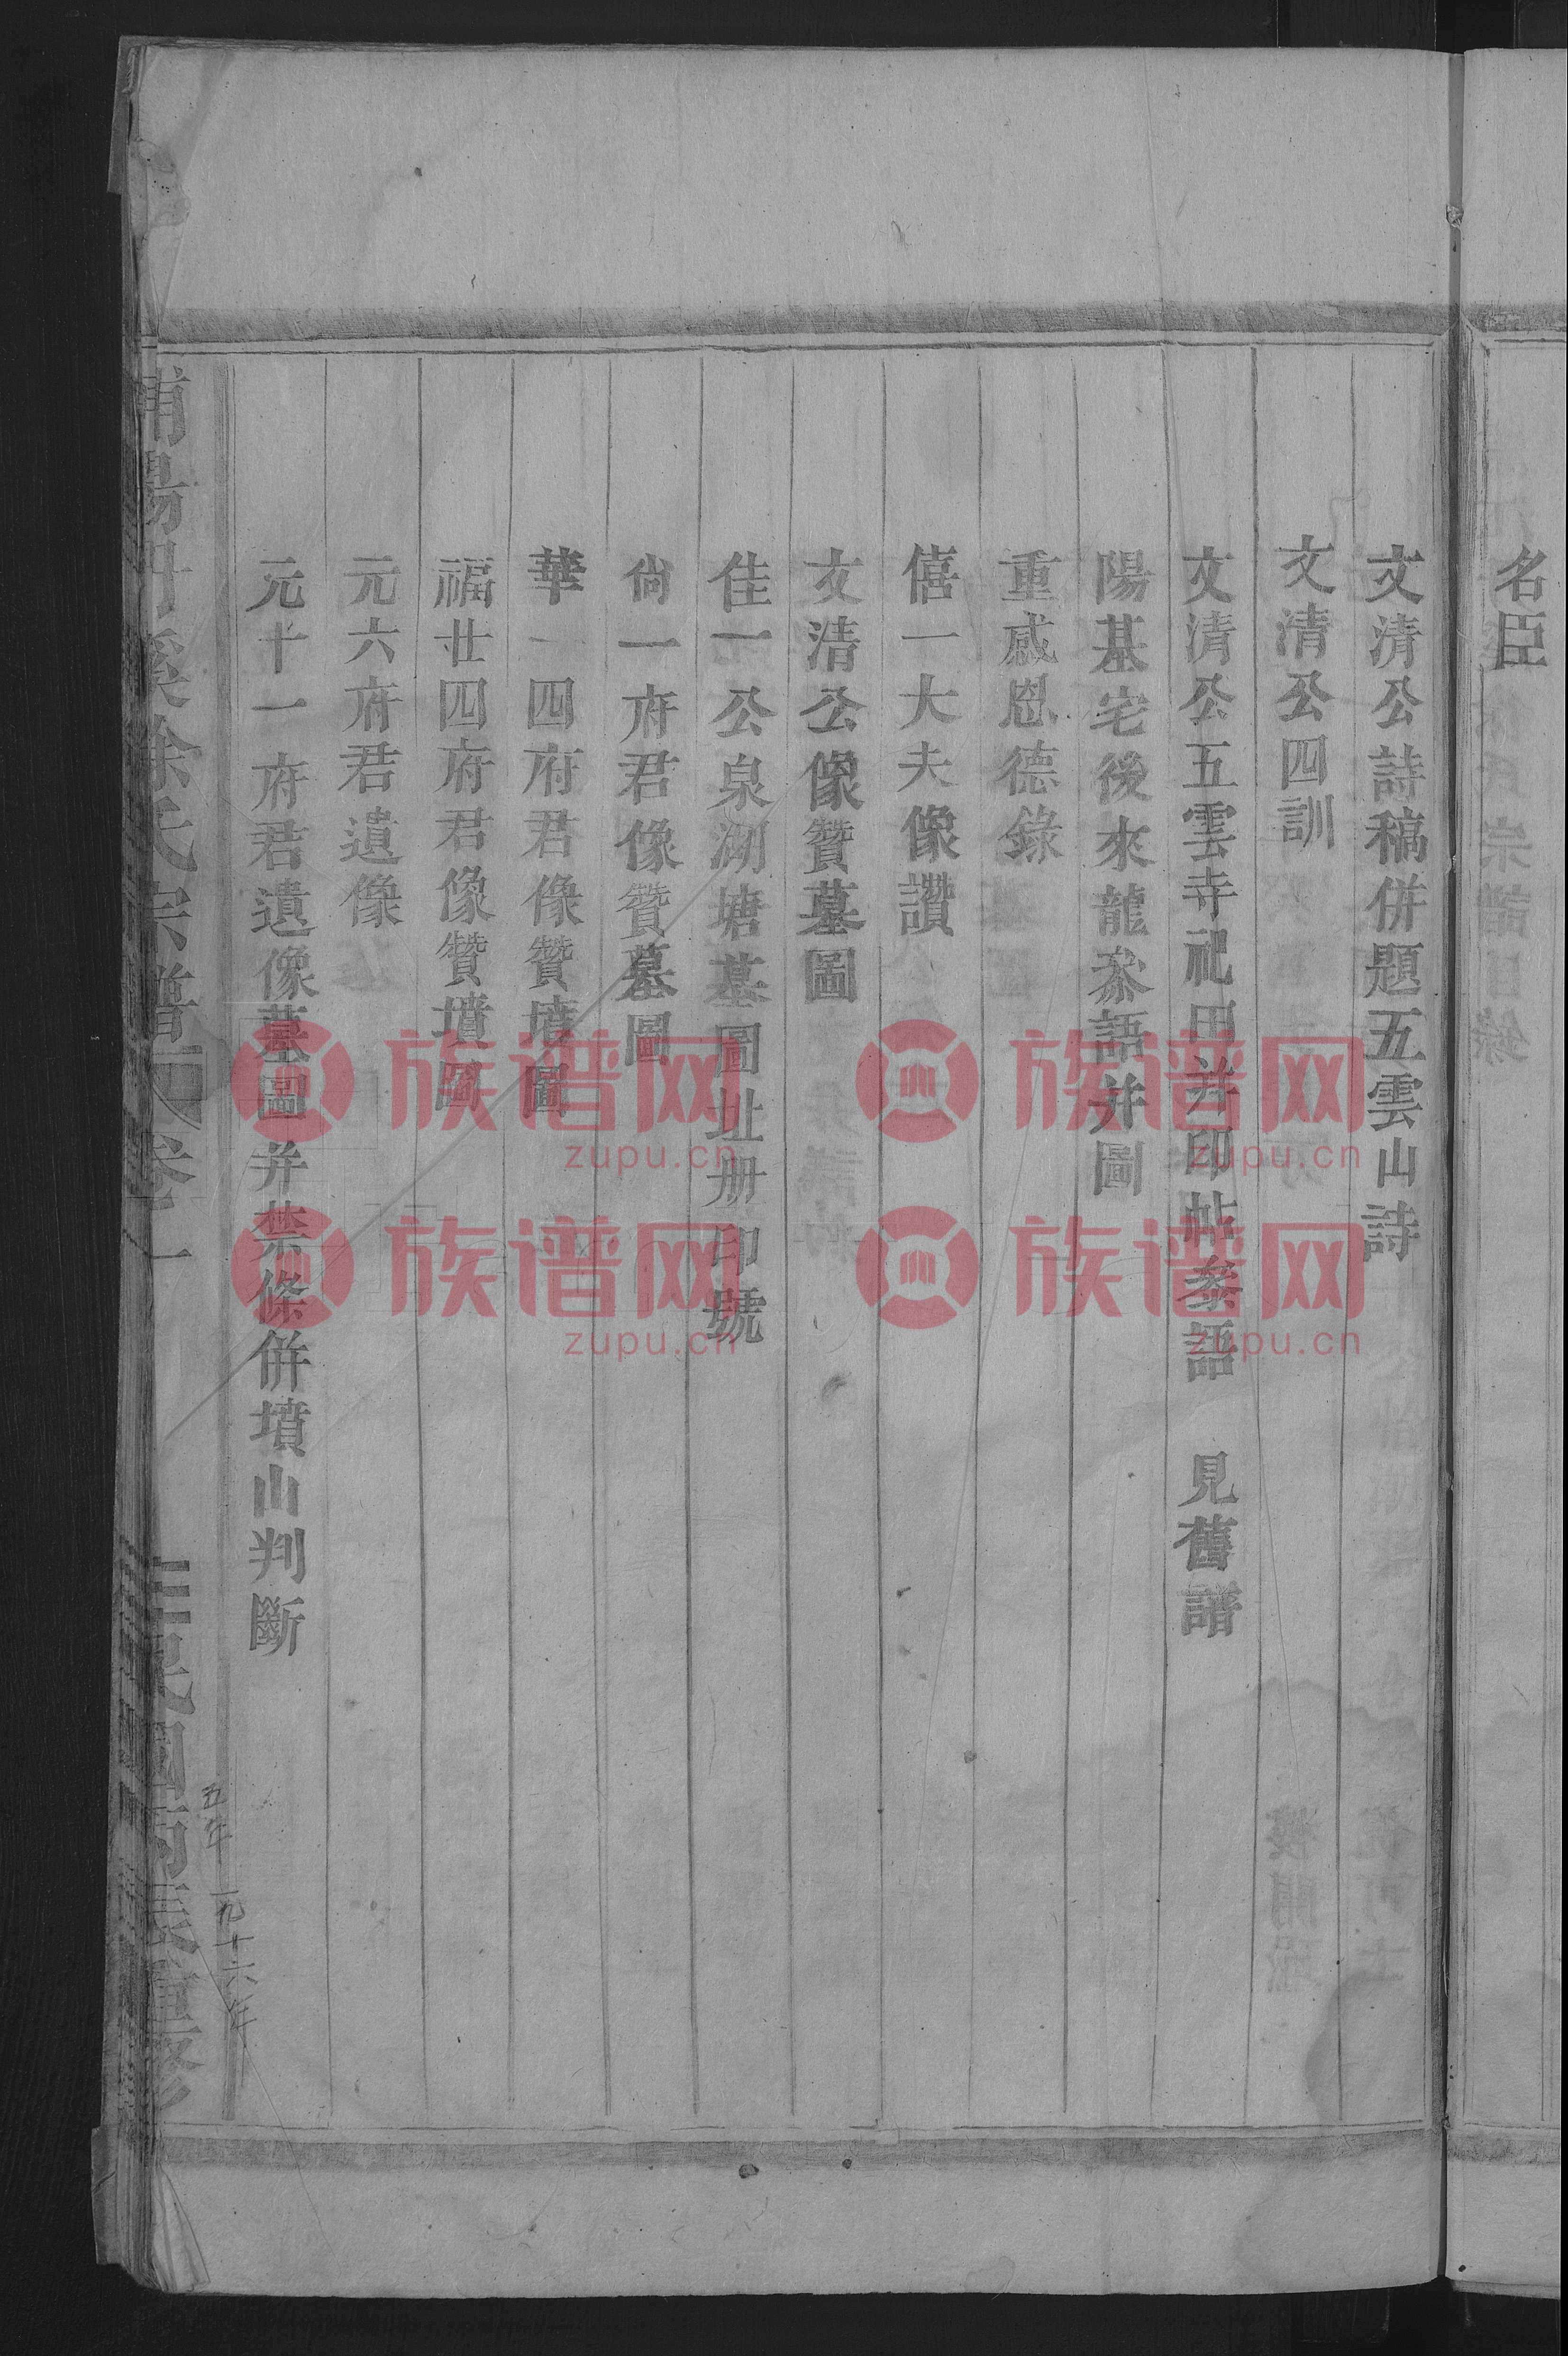 名臣
文清公詩稿併題五雲山詩
文清公四訓
文清公五雲寺祀田并印帖叅語　見舊譜
陽基宅後來龍叅語并圖
重感恩德錄
僖一大夫像讚
文清公像贊墓圖
佳一公泉湖塘墓圖址册印號
尙一府君像贊墓圖
華一四府君像贊墳圖
福廿四府君像贊墳圖
元六府君遺像
元十一府君遺像墓圖并禁條併墳山判斷
徐氏宗譜 卷一
民國丙辰重修
五年
一九十六年
族谱网
zupu.cn
族谱网
zupu.cn
族谱网
zupu.cn
族谱网
zupu.cn